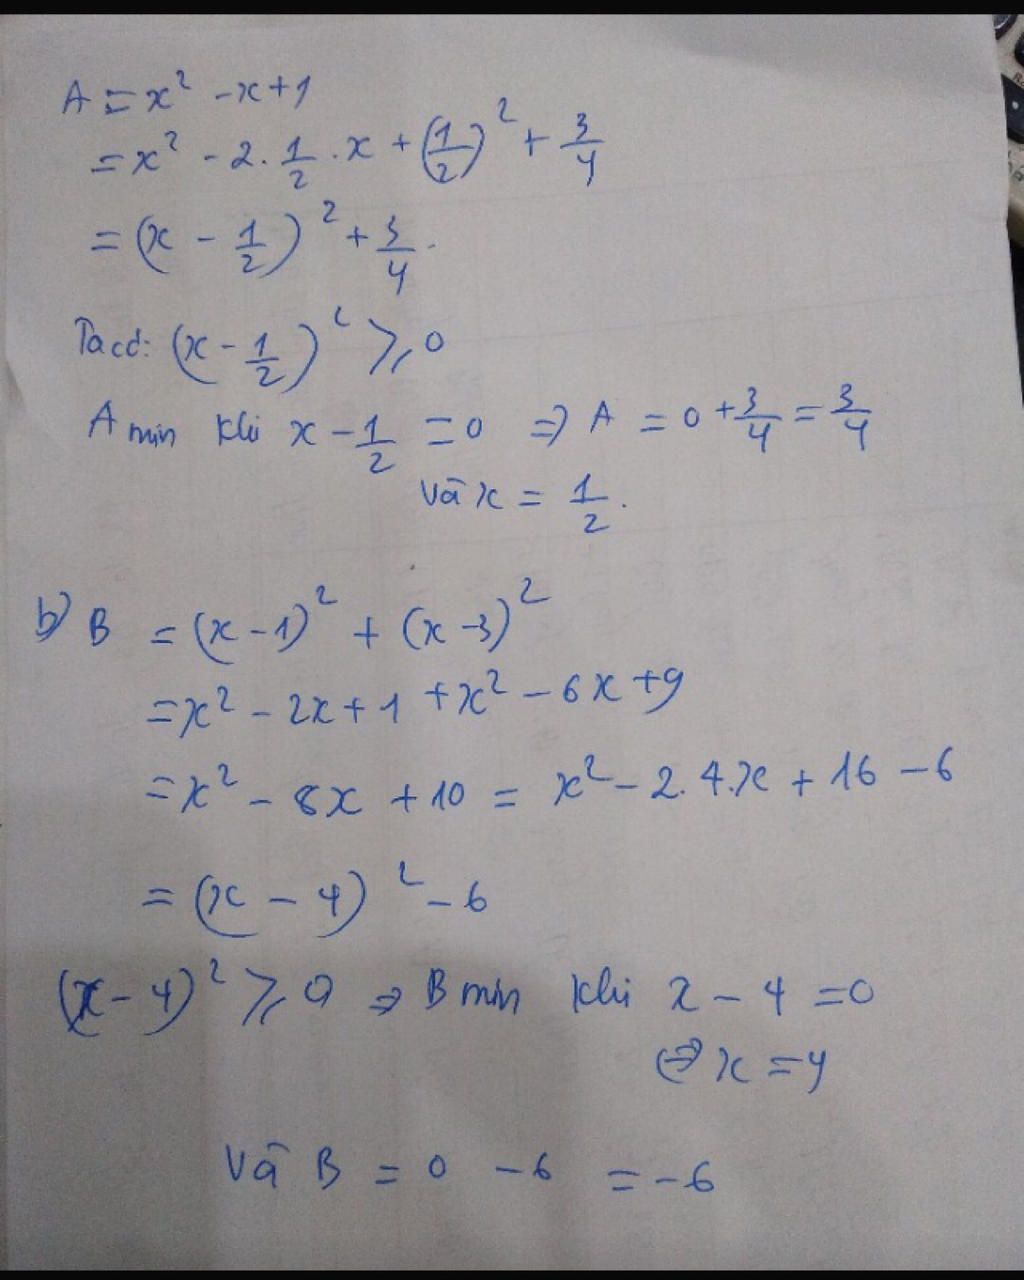 A = x² - x + 1
= x² - 2. 1/2 . x + (1/2)² + 3/4
= (x - 1/2)² + 3/4.
Ta có: (x - 1/2)² ≥ 0
A min khi x - 1/2 = 0 ⇒ A = 0 + 3/4 = 3/4
và x = 1/2.
b) B = (x - 1)² + (x - 3)²
= x² - 2x + 1 + x² - 6x + 9
= x² - 8x + 10 = x² - 2. 4. x + 16 - 6
= (x - 4)² - 6
(x - 4)² ≥ 0 ⇒ B min khi x - 4 = 0
⇔ x = 4
Và B = 0 - 6 = -6